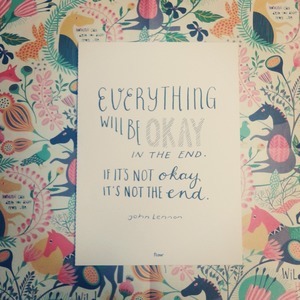 EVERYTHING
WILL BE OKAY
IN THE END.
IF IT'S NOT okay,
IT'S NOT THE end.
JOHN LENNON
flow